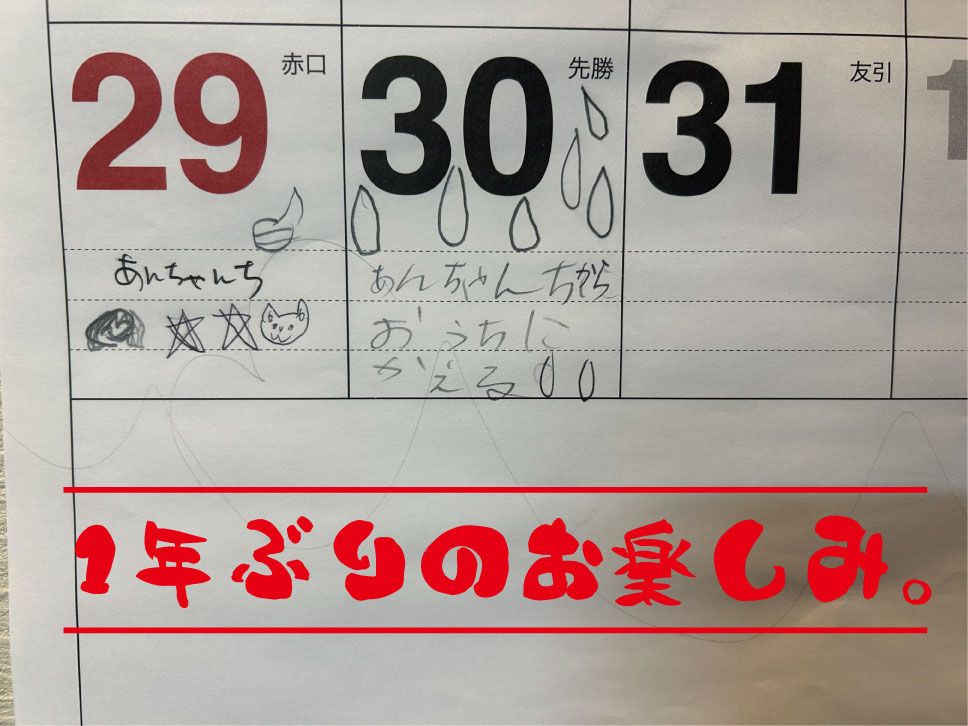 29 赤口
30 先勝
31 友引
1
あんちゃんち
あんちゃんちから
おうちに
かえる
1年ぶりのお楽しみ。